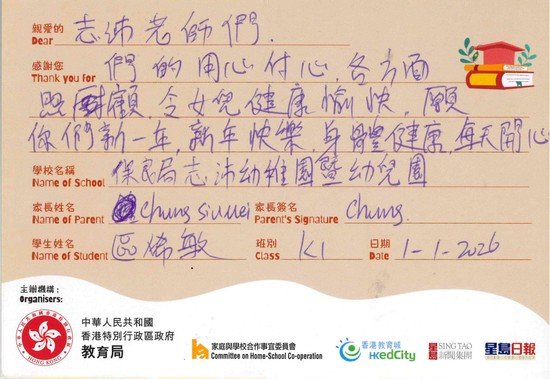 親愛的
Dear 志沛老師們.
感謝您
Thank you for 們的用心付心, 各方面
照顧, 令女兒健康愉快, 願
你們新一年, 新年快樂, 身體健康, 每天開心
學校名稱
Name of School 保良局志沛幼稚園暨幼兒園
家長姓名 家長簽名
Name of Parent Chung Siu Mei Parent's Signature Chung.
學生姓名 班別 日期
Name of Student 區 敏 Class K1 Date 1-1-2026
主辦機構：
Organisers:
中華人民共和國
香港特別行政區政府
教育局
家庭與學校合作事宜委員會
Committee on Home-School Co-operation
香港教育城
HKedCity
星島 SING TAO
新聞集團
星島日報